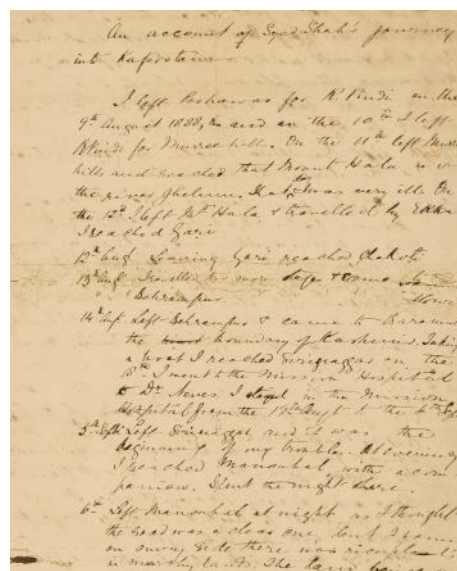 An account of Syed Shah's journey
into Kafirstan
I left Peshawar for R. Pindi on the
9th August 1888, and on the 10th I left
RPindi for Murree hills. On the 11th left
hills and reached that Mount Hala
the river Jhelum. That was very ill. On
the 12th I left Mt Hala & travelled by Ekka
I reached Gari
12th Aug Leaving Gari reached Chakoti
13th Aug Travelled two more stages & came to
Behrampur.
14th Aug Left Behrampur & came to
the boundary of Kashmir. Taking
a boat I reached Srinaggar on the
I went to the Mission Hospital
to Dr. Neves. I stayed in the Mission
Hospital from the Augt to the Sept
5th Sept Left Srinaggar, and it was the
beginning of my troubles. At evening
I reached Manasbal, with a com
panion. Spent the night there.
6th Left Manasbal at night as I thought
the road was a clear one, but I came
on every side there was
in marshy lands. The